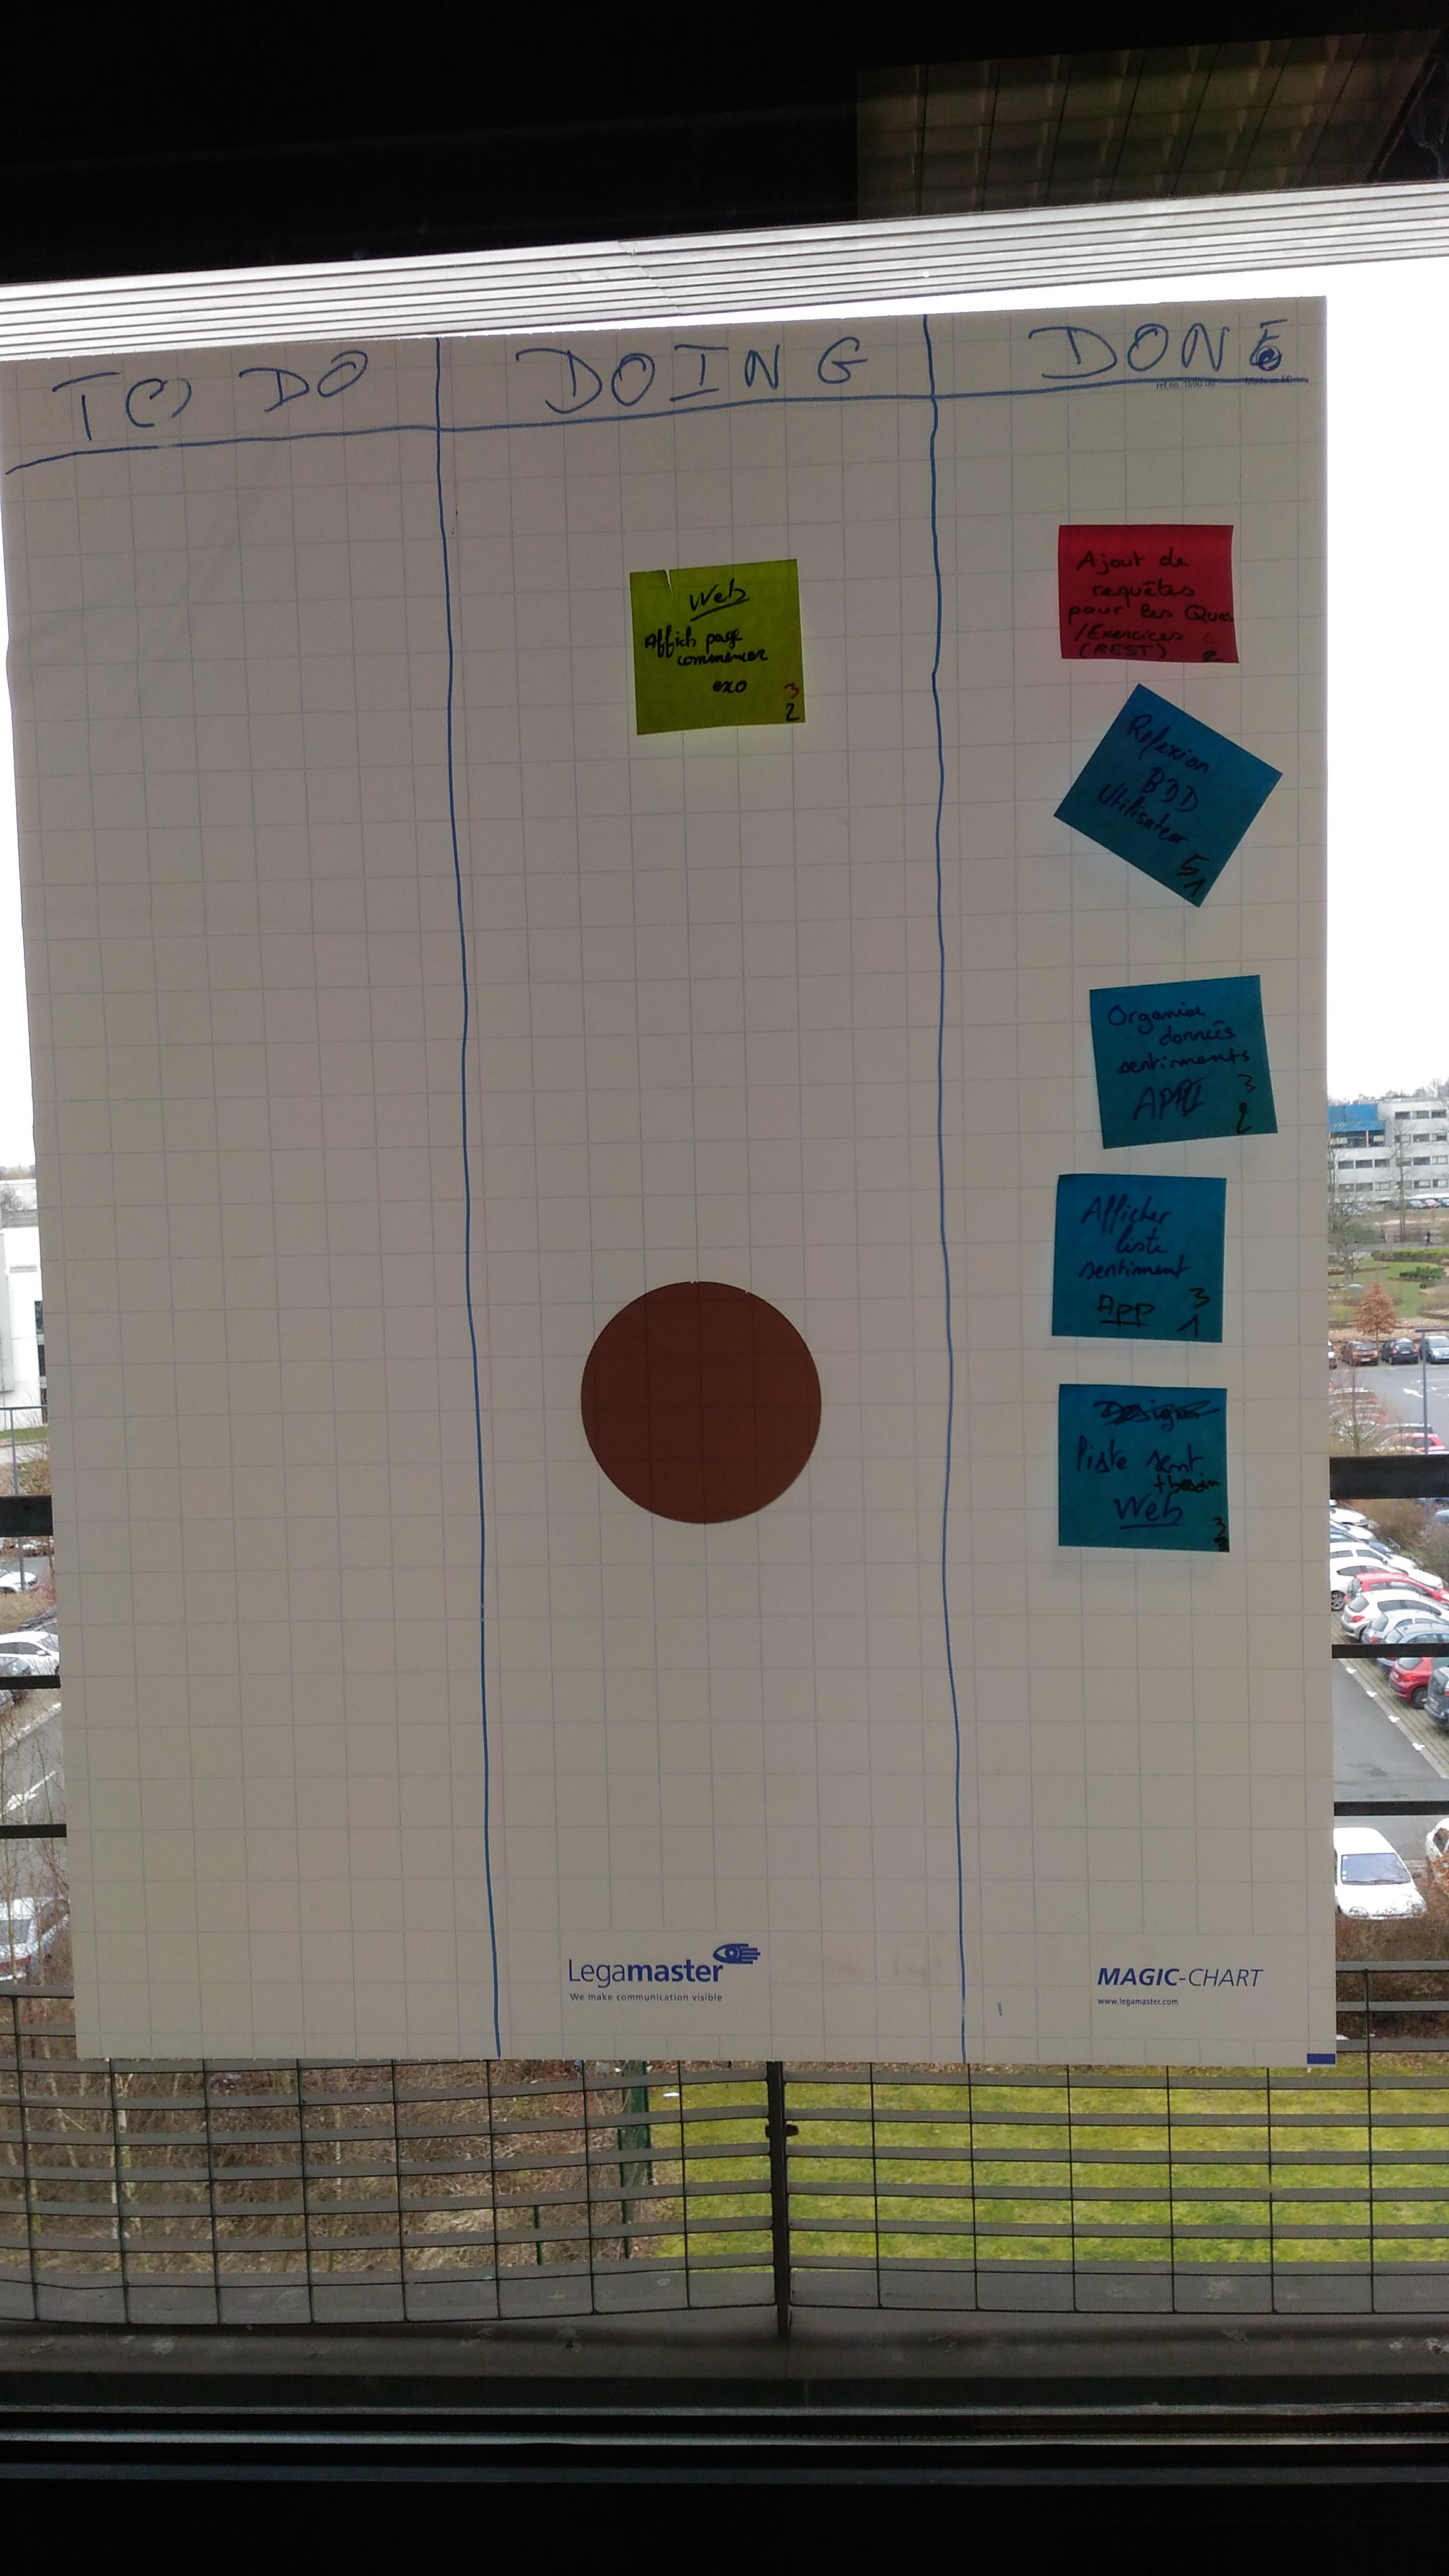 TO DO
DOING
DONE
ref.no. 1590 00
Made in EC
Web
Affich page
commencer
exo
3
2
Ajout de
requêtes
pour les Ques
/Exercices
(REST)
4
2
Reflexion
BDD
Utilisateur
5
1
Organise
données
sentiments
3
2
Afficher
liste
sentiment
App
3
1
Design
liste sent
+besoin
Web
3
Legamaster
We make communication visible
MAGIC-CHART
www.legamaster.com